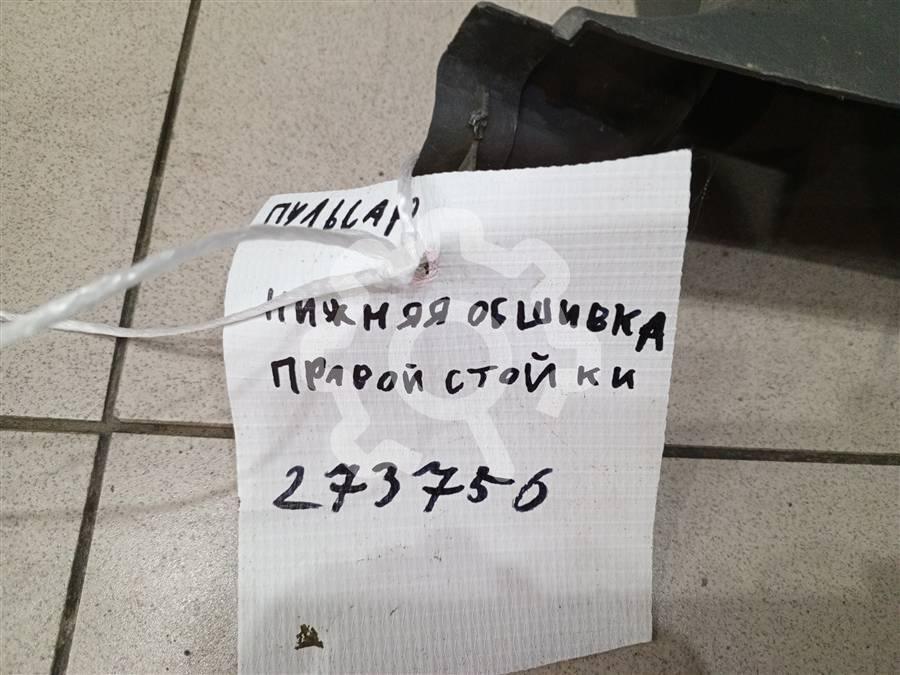 ПУЛЬСАР
НИЖНЯЯ ОБШИВКА
ПРАВОЙ СТОЙКИ
273756